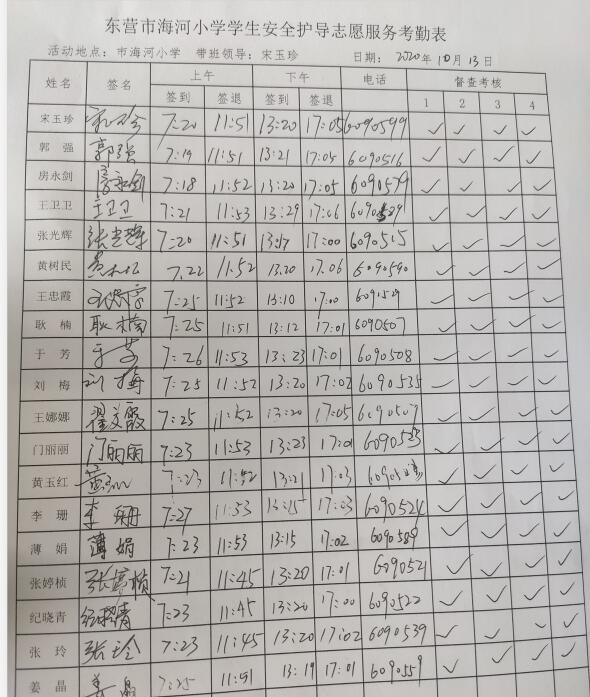 东营市海河小学学生安全护导志愿服务考勤表
活动地点：市海河小学 带班领导：宋玉珍 日期：2020年10月13日
姓名 签名 上午 下午 电话 督查考核
签到 签退 签到 签退 1 2 3 4
宋玉珍 7:20 11:51 13:20 17:05 6090599 ✓ ✓ ✓ ✓
郭强 郭强 7:19 11:51 13:21 17:05 6090516 ✓ ✓ ✓ ✓
房永剑 房永剑 7:18 11:52 13:20 17:05 6090579 ✓ ✓ ✓ ✓
王卫卫 王卫卫 7:21 11:53 13:29 17:06 ✓ ✓ ✓ ✓
张光辉 张光辉 7:20 11:51 13:17 17:00 6090515 ✓ ✓ ✓ ✓
黄树民 7.22 11.52 13.20 17.06 6090590 ✓ ✓ ✓ ✓
王忠霞 7:25 11:52 13:10 17:00 ✓ ✓ ✓ ✓
耿楠 耿楠 7:25 11:51 13:12 17:01 6090507 ✓ ✓ ✓ ✓
于芳 于芳 7:26 11:53 13:23 17:01 6090508 ✓ ✓ ✓ ✓
刘梅 刘梅 7:25 11:52 13:20 17:02 6090535 ✓ ✓ ✓ ✓
王娜娜 7:25 11:52 13:20 17:05 ✓ ✓ ✓ ✓
门丽丽 门丽丽 7:23 11:53 13:23 17:01 6090533 ✓ ✓ ✓ ✓
黄玉红 7:23 11:52 13:21 17:03 ✓ ✓ ✓ ✓
李珊 李珊 7:27 11:53 13:15 17:03 6090524 ✓ ✓ ✓ ✓
薄娟 薄娟 7:23 11:53 13:15 17:02 6090589 ✓ ✓ ✓ ✓
张婷桢 张婷桢 7:21 11:45 13:20 17:01 6090521 ✓ ✓ ✓ ✓
纪晓青 纪晓青 7:23 11:45 13:20 17:00 6090522 ✓ ✓ ✓ ✓
张玲 张玲 7:23 11:45 13:20 17:02 6090539 ✓ ✓ ✓ ✓
姜晶 姜晶 7:25 11:51 13:19 17:01 6090559 ✓ ✓ ✓ ✓